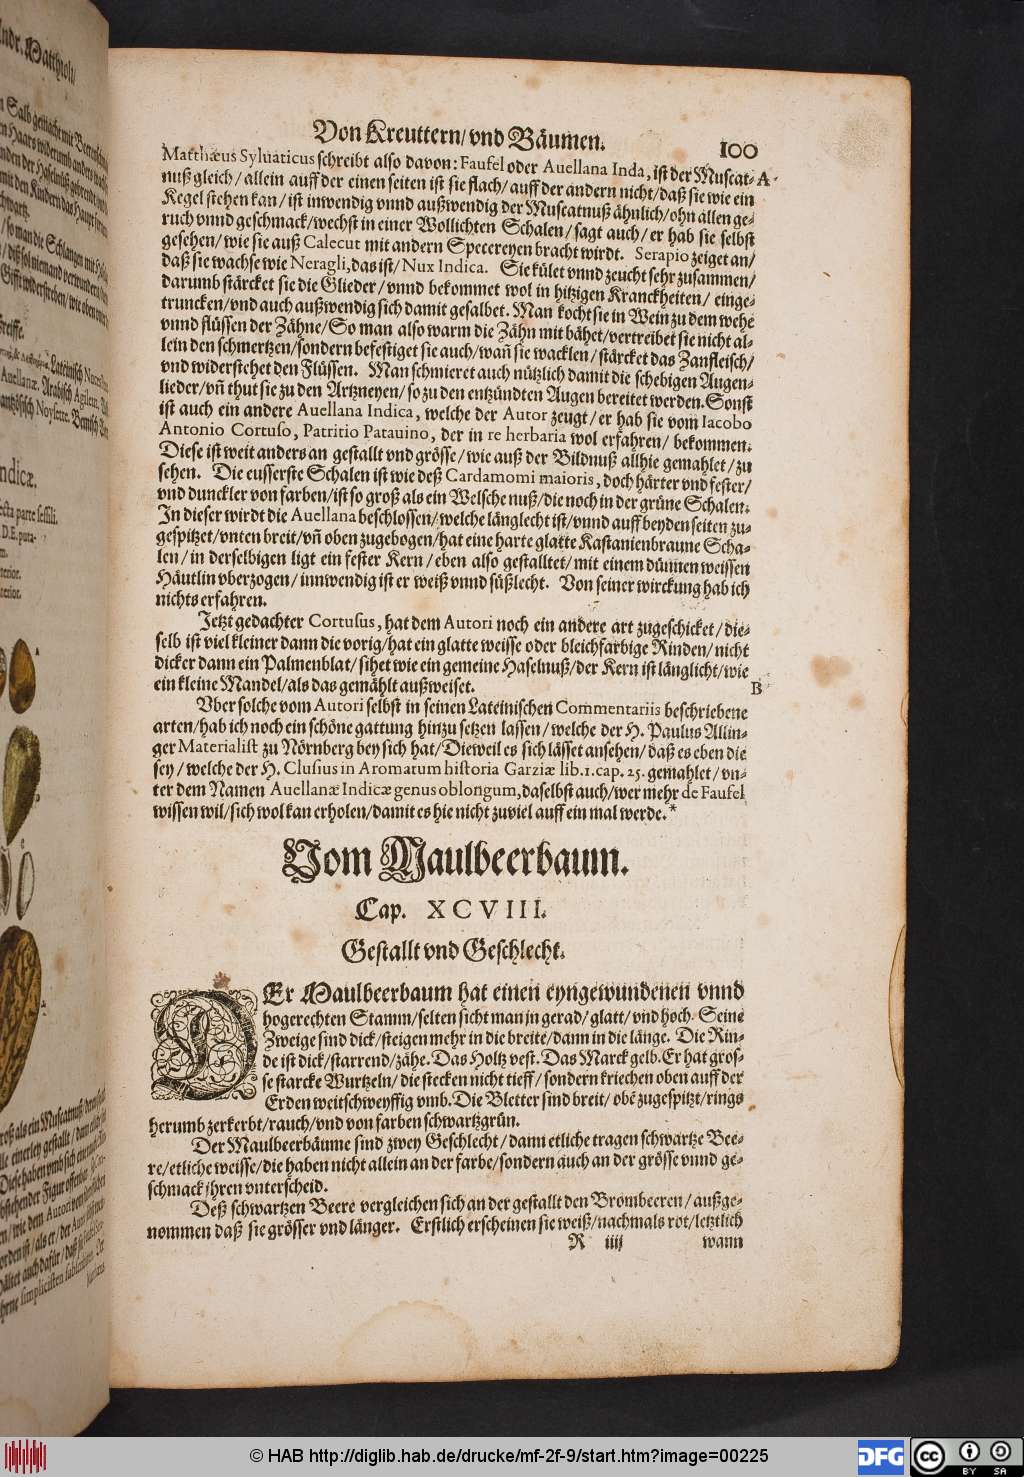 Von Kreuttern/ vnd Bäumen. 100
Matthæus Syluaticus schreibt also davon: Faufel oder Auellana Inda, ist der Muscat- A
nuß gleich/ allein auff der einen seiten ist sie flach/ auff der andern nicht/ daß sie wie ein
Kegel stehen kan/ ist inwendig vnnd außwendig der Muscatnuß ähnlich/ ohn allen ge-
ruch vnnd geschmack/ wechst in einer Wollichten Schalen/ sagt auch/ er hab sie selbst
gesehen/ wie sie auß Calecut mit andern Specereyen bracht wirdt. Serapio zeiget an/
daß sie wachse wie Neragli, das ist/ Nux Indica. Sie kület vnnd zeucht sehr zusammen/
darumb stärcket sie die Glieder/ vnnd bekommet wol in hitzigen Kranckheiten/ einge-
truncken/ vnd auch außwendig sich damit gesalbet. Man kocht sie in Wein zu dem wehe
vnnd flüssen der Zähne/ So man also warm die Zähn mit bähet/ vertreibet sie nicht al-
lein den schmertzen/ sondern befestiget sie auch/ wañ sie wacklen/ stärcket das Zanfleisch/
vnd widerstehet den Flüssen. Man schmieret auch nützlich damit die schebigen Augen-
lieder/ vñ thut sie zu den Artzneyen/ so zu den entzündten Augen bereitet werden. Sonst
ist auch ein andere Auellana Indica, welche der Autor zeugt/ er hab sie vom Iacobo
Antonio Cortuso, Patritio Patauino, der in re herbaria wol erfahren/ bekommen.
Diese ist weit anders an gestallt vnd grösse/ wie auß der Bildnuß allhie gemahlet/ zu
sehen. Die eusserste Schalen ist wie deß Cardamomi maioris, doch härter vnd fester/
vnd dunckler von farben/ ist so groß als ein Welsche nuß/ die noch in der grüne Schalen.
In dieser wirdt die Auellana beschlossen/ welche länglecht ist/ vnnd auff beyden seiten zu-
gespitzet/ vnten breit/ vñ oben zugebogen/ hat eine harte glatte Kastanienbraune Scha-
len/ in derselbigen ligt ein fester Kern/ eben also gestalltet/ mit einem dünnen weissen
Häutlin vberzogen/ innwendig ist er weiß vnnd süßlecht. Von seiner wirckung hab ich
nichts erfahren.
Jetzt gedachter Cortusus, hat dem Autori noch ein andere art zugeschicket/ die-
selb ist viel kleiner dann die vorig/ hat ein glatte weisse oder bleichfarbige Rinden/ nicht
dicker dann ein Palmenblat/ sihet wie ein gemeine Haselnuß/ der Kern ist länglicht/ wie
ein kleine Mandel/ als das gemählt außweiset. B
Vber solche vom Autori selbst in seinen Lateinischen Commentariis beschriebene
arten/ hab ich noch ein schöne gattung hinzu setzen lassen/ welche der H. Paulus Allin-
ger Materialist zu Nörnberg bey sich hat/ Dieweil es sich lässet ansehen/ daß es eben die
sey/ welche der H. Clusius in Aromatum historia Garziæ lib. 1. cap. 25. gemahlet/ vn-
ter dem Namen Auellanæ Indicæ genus oblongum, daselbst auch/ wer mehr de Faufel
wissen wil/ sich wol kan erholen/ damit es hie nicht zuviel auff ein mal werde.*
Vom Maulbeerbaum.
Cap. XCVIII.
Gestallt vnd Geschlecht.
DEr Maulbeerbaum hat einen eyngewundenen vnnd
hogerechten Stamm/ selten sicht man jn gerad/ glatt/ vnd hoch. Seine
Zweige sind dick/ steigen mehr in die breite/ dann in die länge. Die Rin-
de ist dick/ starrend/ zähe. Das Holtz vest. Das Marck gelb. Er hat gros-
se starcke Wurtzeln/ die stecken nicht tieff/ sondern kriechen oben auff der
Erden weitschweyffig vmb. Die Bletter sind breit/ obẽ zugespitzt/ rings
herumb zerkerbt/ rauch/ vnd von farben schwartzgrün.
Der Maulbeerbäume sind zwey Geschlecht/ dann etliche tragen schwartze Bee-
re/ etliche weisse/ die haben nicht allein an der farbe/ sondern auch an der grösse vnnd ge-
schmack jhren vnterscheid.
Deß schwartzen Beere vergleichen sich an der gestallt den Brombeeren/ außge-
nommen daß sie grösser vnd länger. Erstlich erscheinen sie weiß/ nachmals rot/ letztlich
R iiij wann
© HAB http://diglib.hab.de/drucke/mf-2f-9/start.htm?image=00225
DFG
cc
BY SA